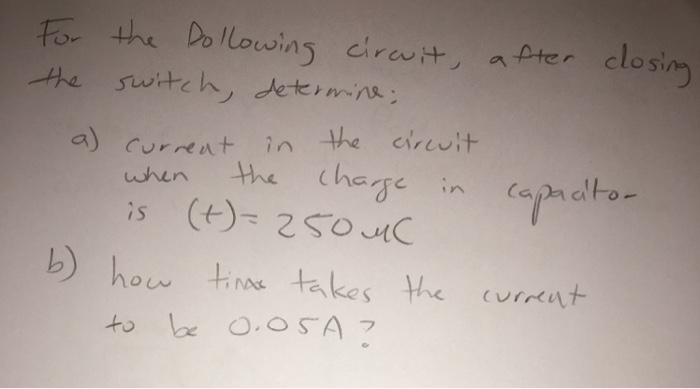 For the Dollowing circuit, after closing
the switch, determine:
a) current in the circuit
when the charge in capacitor
is (t)= 250 μC
b) how time takes the current
to be 0.05A?